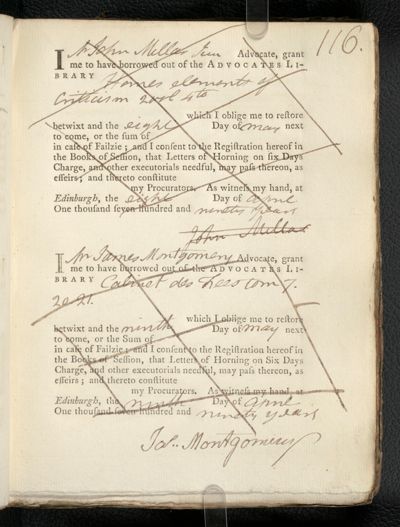 116.
I Mr John Millar Jun Advocate, grant
me to have borrowed out of the ADVOCATES LI-
BRARY Homes elements of
Criticism 2 vol 4to
which I oblige me to reſtore
betwixt and the eight Day of may next
to come, or the ſum of
in caſe of Failzie; and I conſent to the Regiſtration hereof in
the Books of Seſſion, that Letters of Horning on ſix Days
Charge, and other executorials needful, may paſs thereon, as
effeirs; and thereto conſtitute
my Procurators. As witneſs my hand, at
Edinburgh, the eight Day of April
One thouſand ſeven hundred and ninety years
John Millar
I Mr James Montgomery Advocate, grant
me to have borrowed out of the ADVOCATES LI-
BRARY Cabinet des
which I oblige me to reſtore
betwixt and the ninth Day of may next
to come, or the Sum of
in caſe of Failzie; and I conſent to the Regiſtration hereof in
the Books of Seſſion, that Letters of Horning on Six Days
Charge, and other executorials needful, may paſs thereon, as
effeirs; and thereto conſtitute
my Procurators. As witneſs my hand, at
Edinburgh, the ninth Day of April
One thouſand ſeven hundred and ninety years
Jas. Montgomery